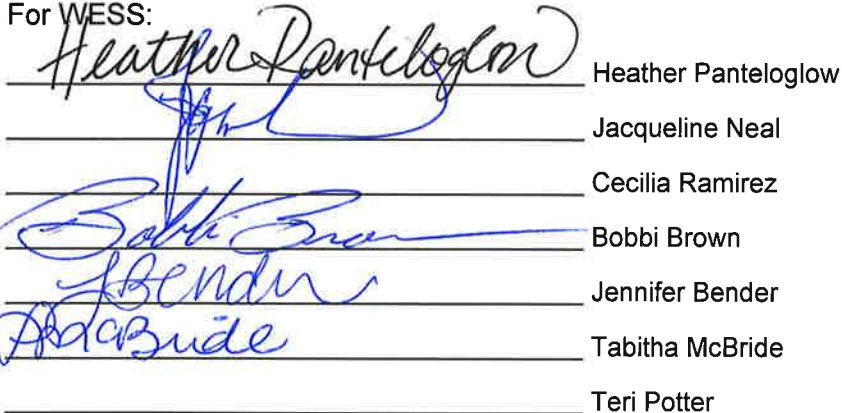 For WESS:
Heather Panteloglow Heather Panteloglow
Jacqueline Neal
Cecilia Ramirez
Bobbi Brown Bobbi Brown
JBender Jennifer Bender
McBride Tabitha McBride
Teri Potter